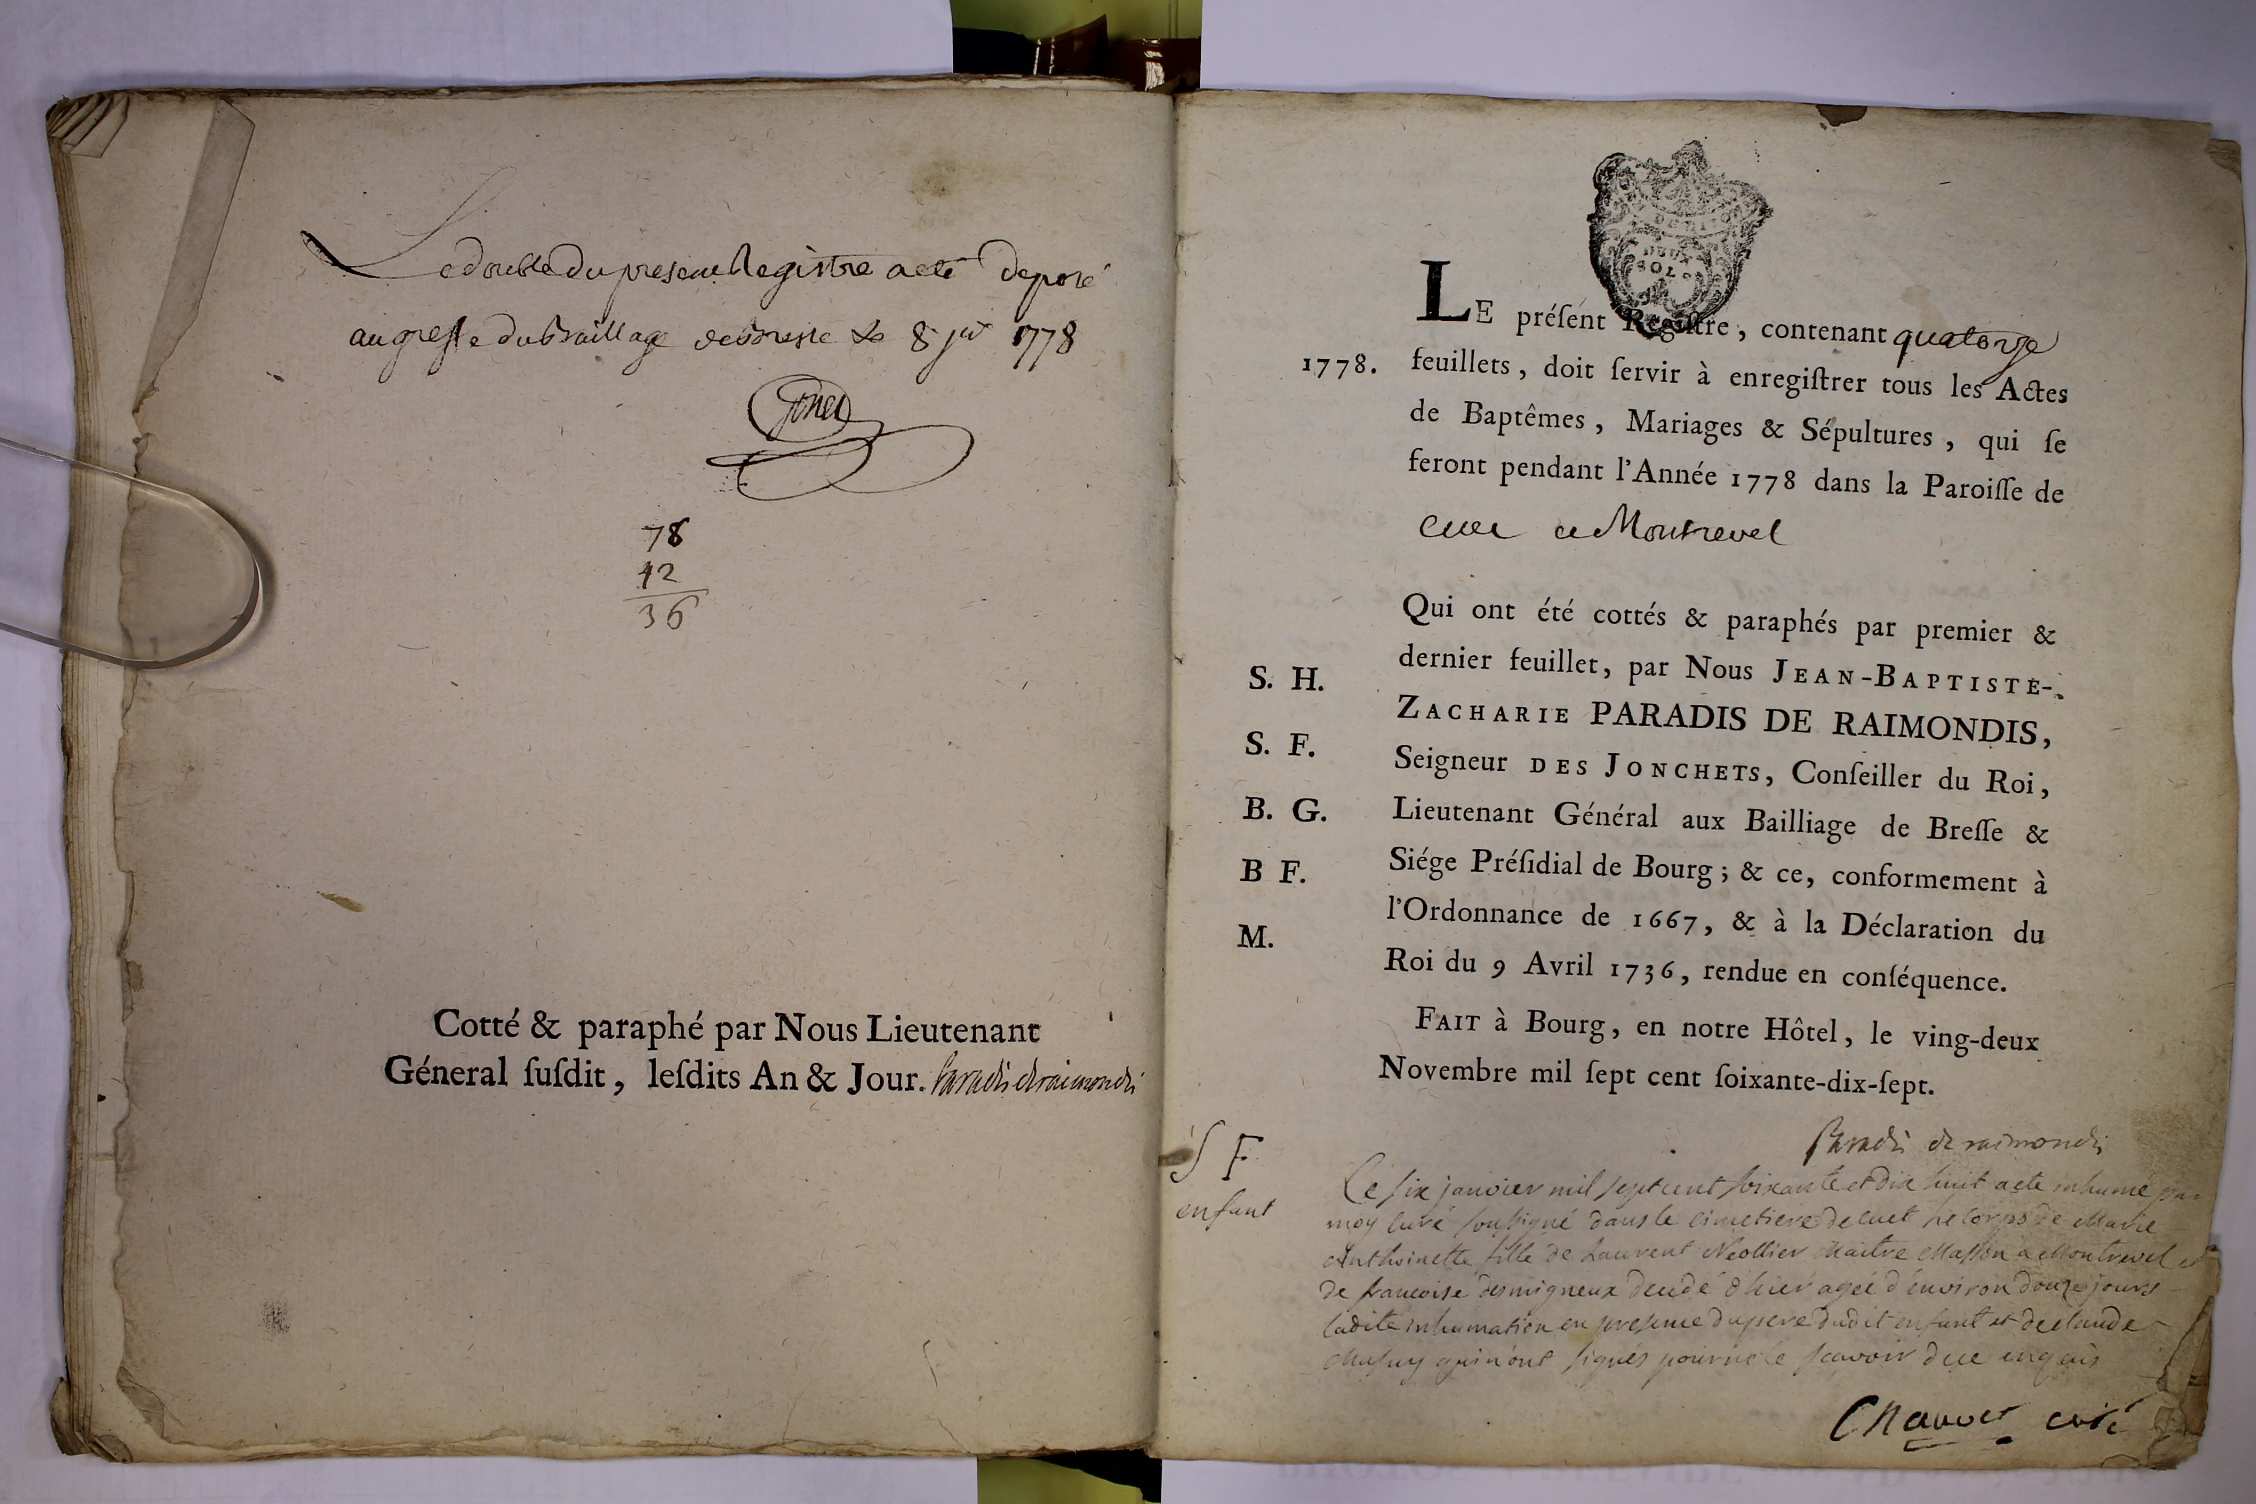 Le double du present Registre a eté deposé
au greffe du Bailliage de Bresse le 8 jer 1778
78
42
36
Cotté & paraphé par Nous Lieutenant
Géneral ſuſdit, leſdits An & Jour. Paradis de raimondis
DEUX
SOLS
LE préſent Regiſtre, contenant quatorze
1778. feuillets, doit ſervir à enregiſtrer tous les Actes
de Baptêmes, Mariages & Sépultures, qui ſe
feront pendant l'Année 1778 dans la Paroiſſe de
Cuet et Montrevel
Qui ont été cottés & paraphés par premier &
dernier feuillet, par Nous JEAN-BAPTISTE-
S. H.
ZACHARIE PARADIS DE RAIMONDIS,
S. F.
Seigneur DES JONCHETS, Conſeiller du Roi,
B. G.
Lieutenant Général aux Bailliage de Breſſe &
B F.
Siége Préſidial de Bourg; & ce, conformement à
l'Ordonnance de 1667, & à la Déclaration du
M.
Roi du 9 Avril 1736, rendue en conſéquence.
FAIT à Bourg, en notre Hôtel, le ving-deux
Novembre mil ſept cent ſoixante-dix-ſept.
Paradis de raimondis
S F
enfant
Le six janvier mil sept cent soixante et dix huit a eté inhumé par
moy curé soussigné dans le cimetiere de cuet le corps de Marie
Anthoinette fille de Laurent Néollier Maitre Masson a Montrevel et
de francoise desmigneux decedé d'hier ageé d'environ douze jours
ladite inhumation en presence du pere dudit enfant et de claude
qui n'ont signés pour ne le scavoir de ce enquis
Chauvet curé